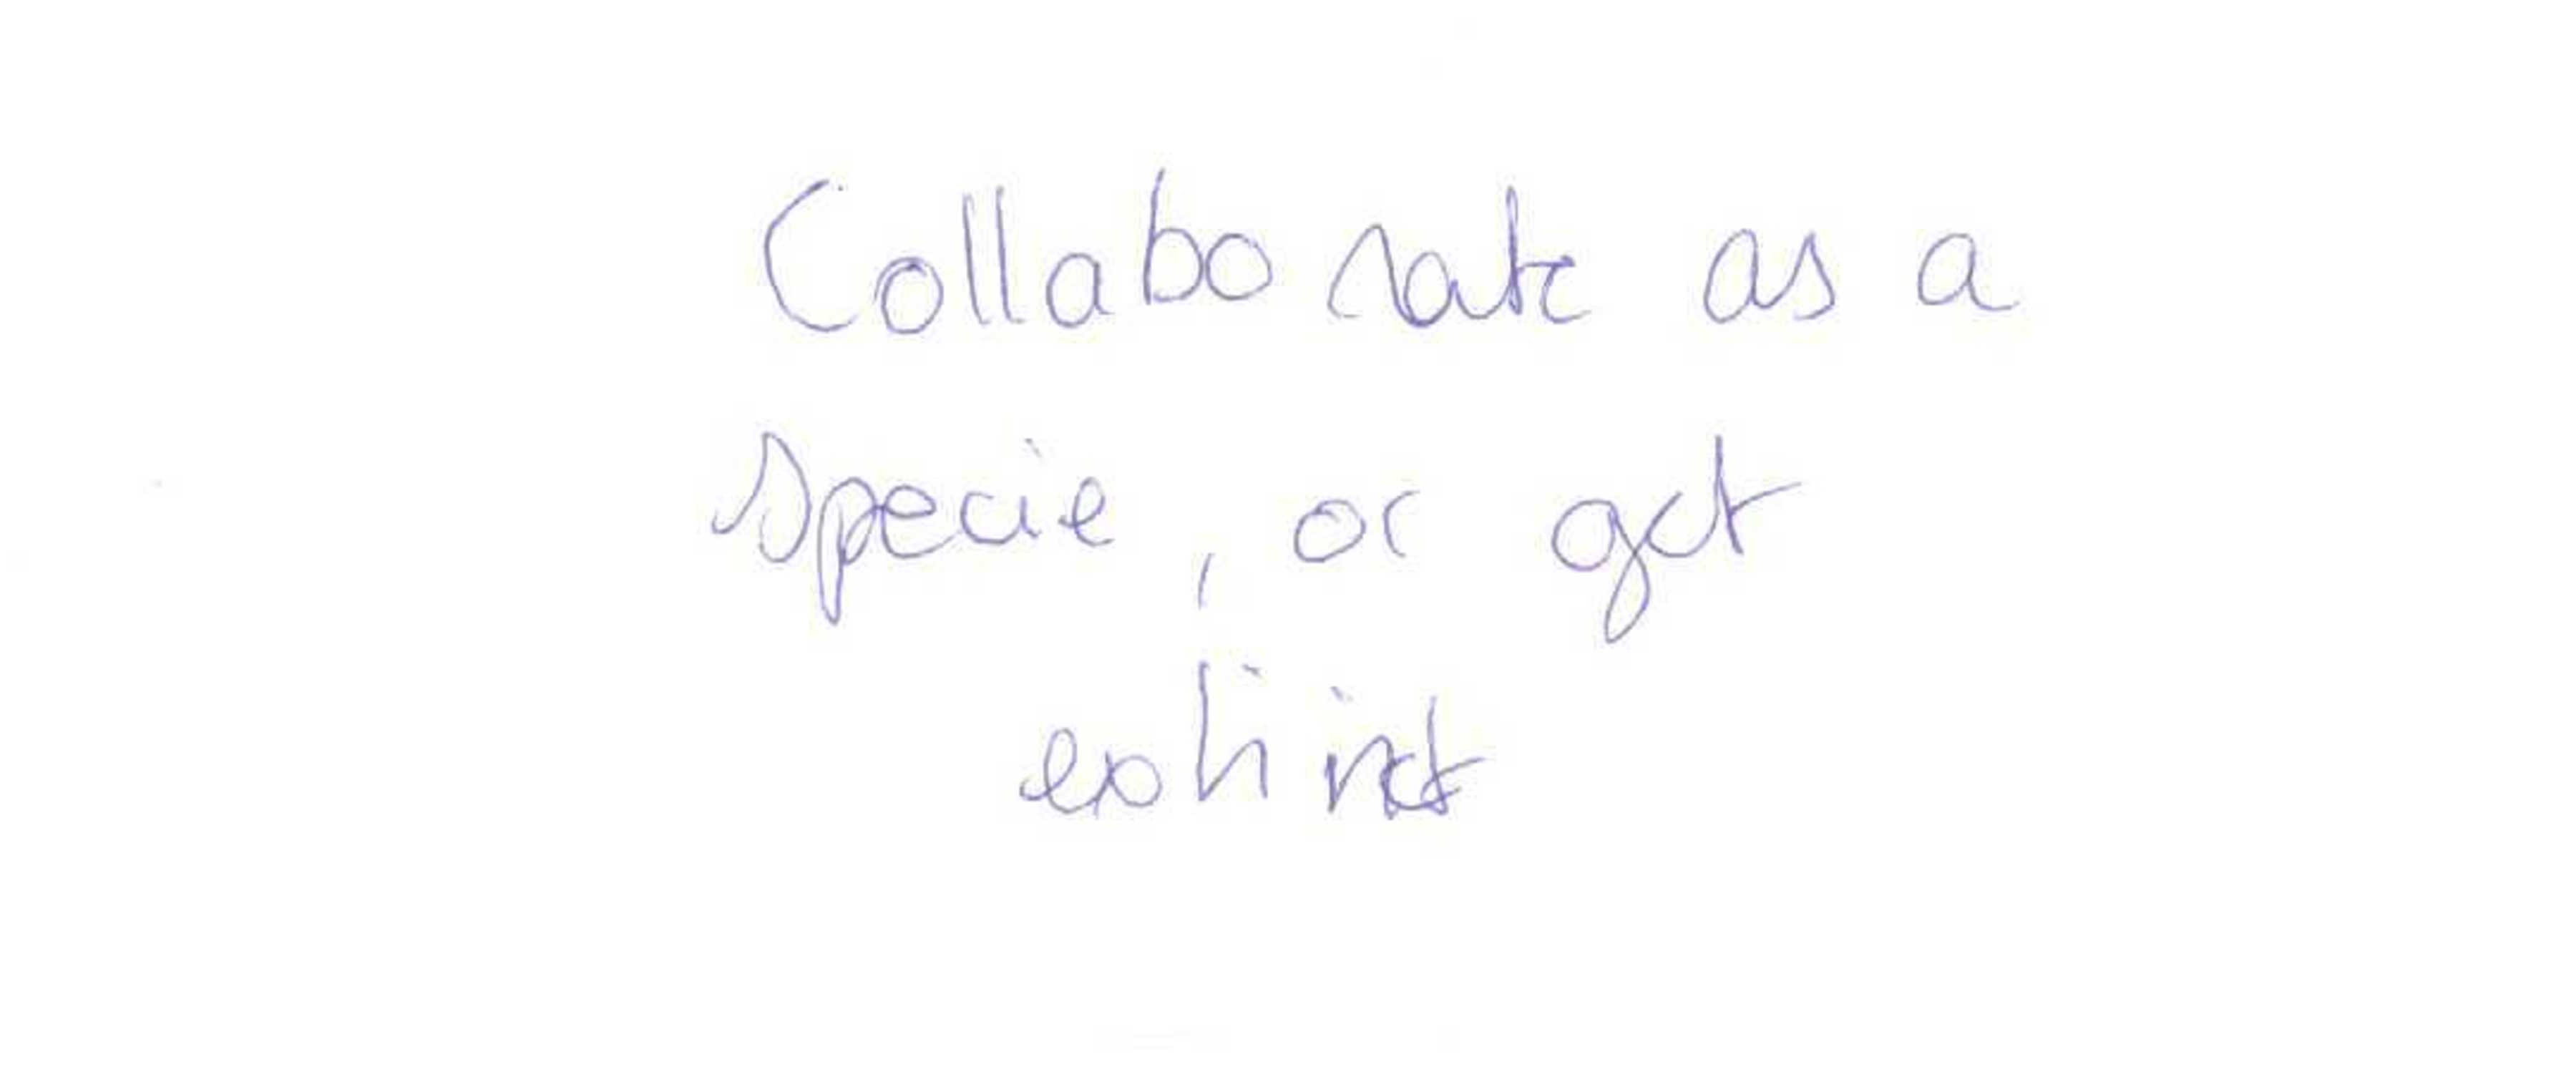 Collaborate as a
specie, or get
extinct